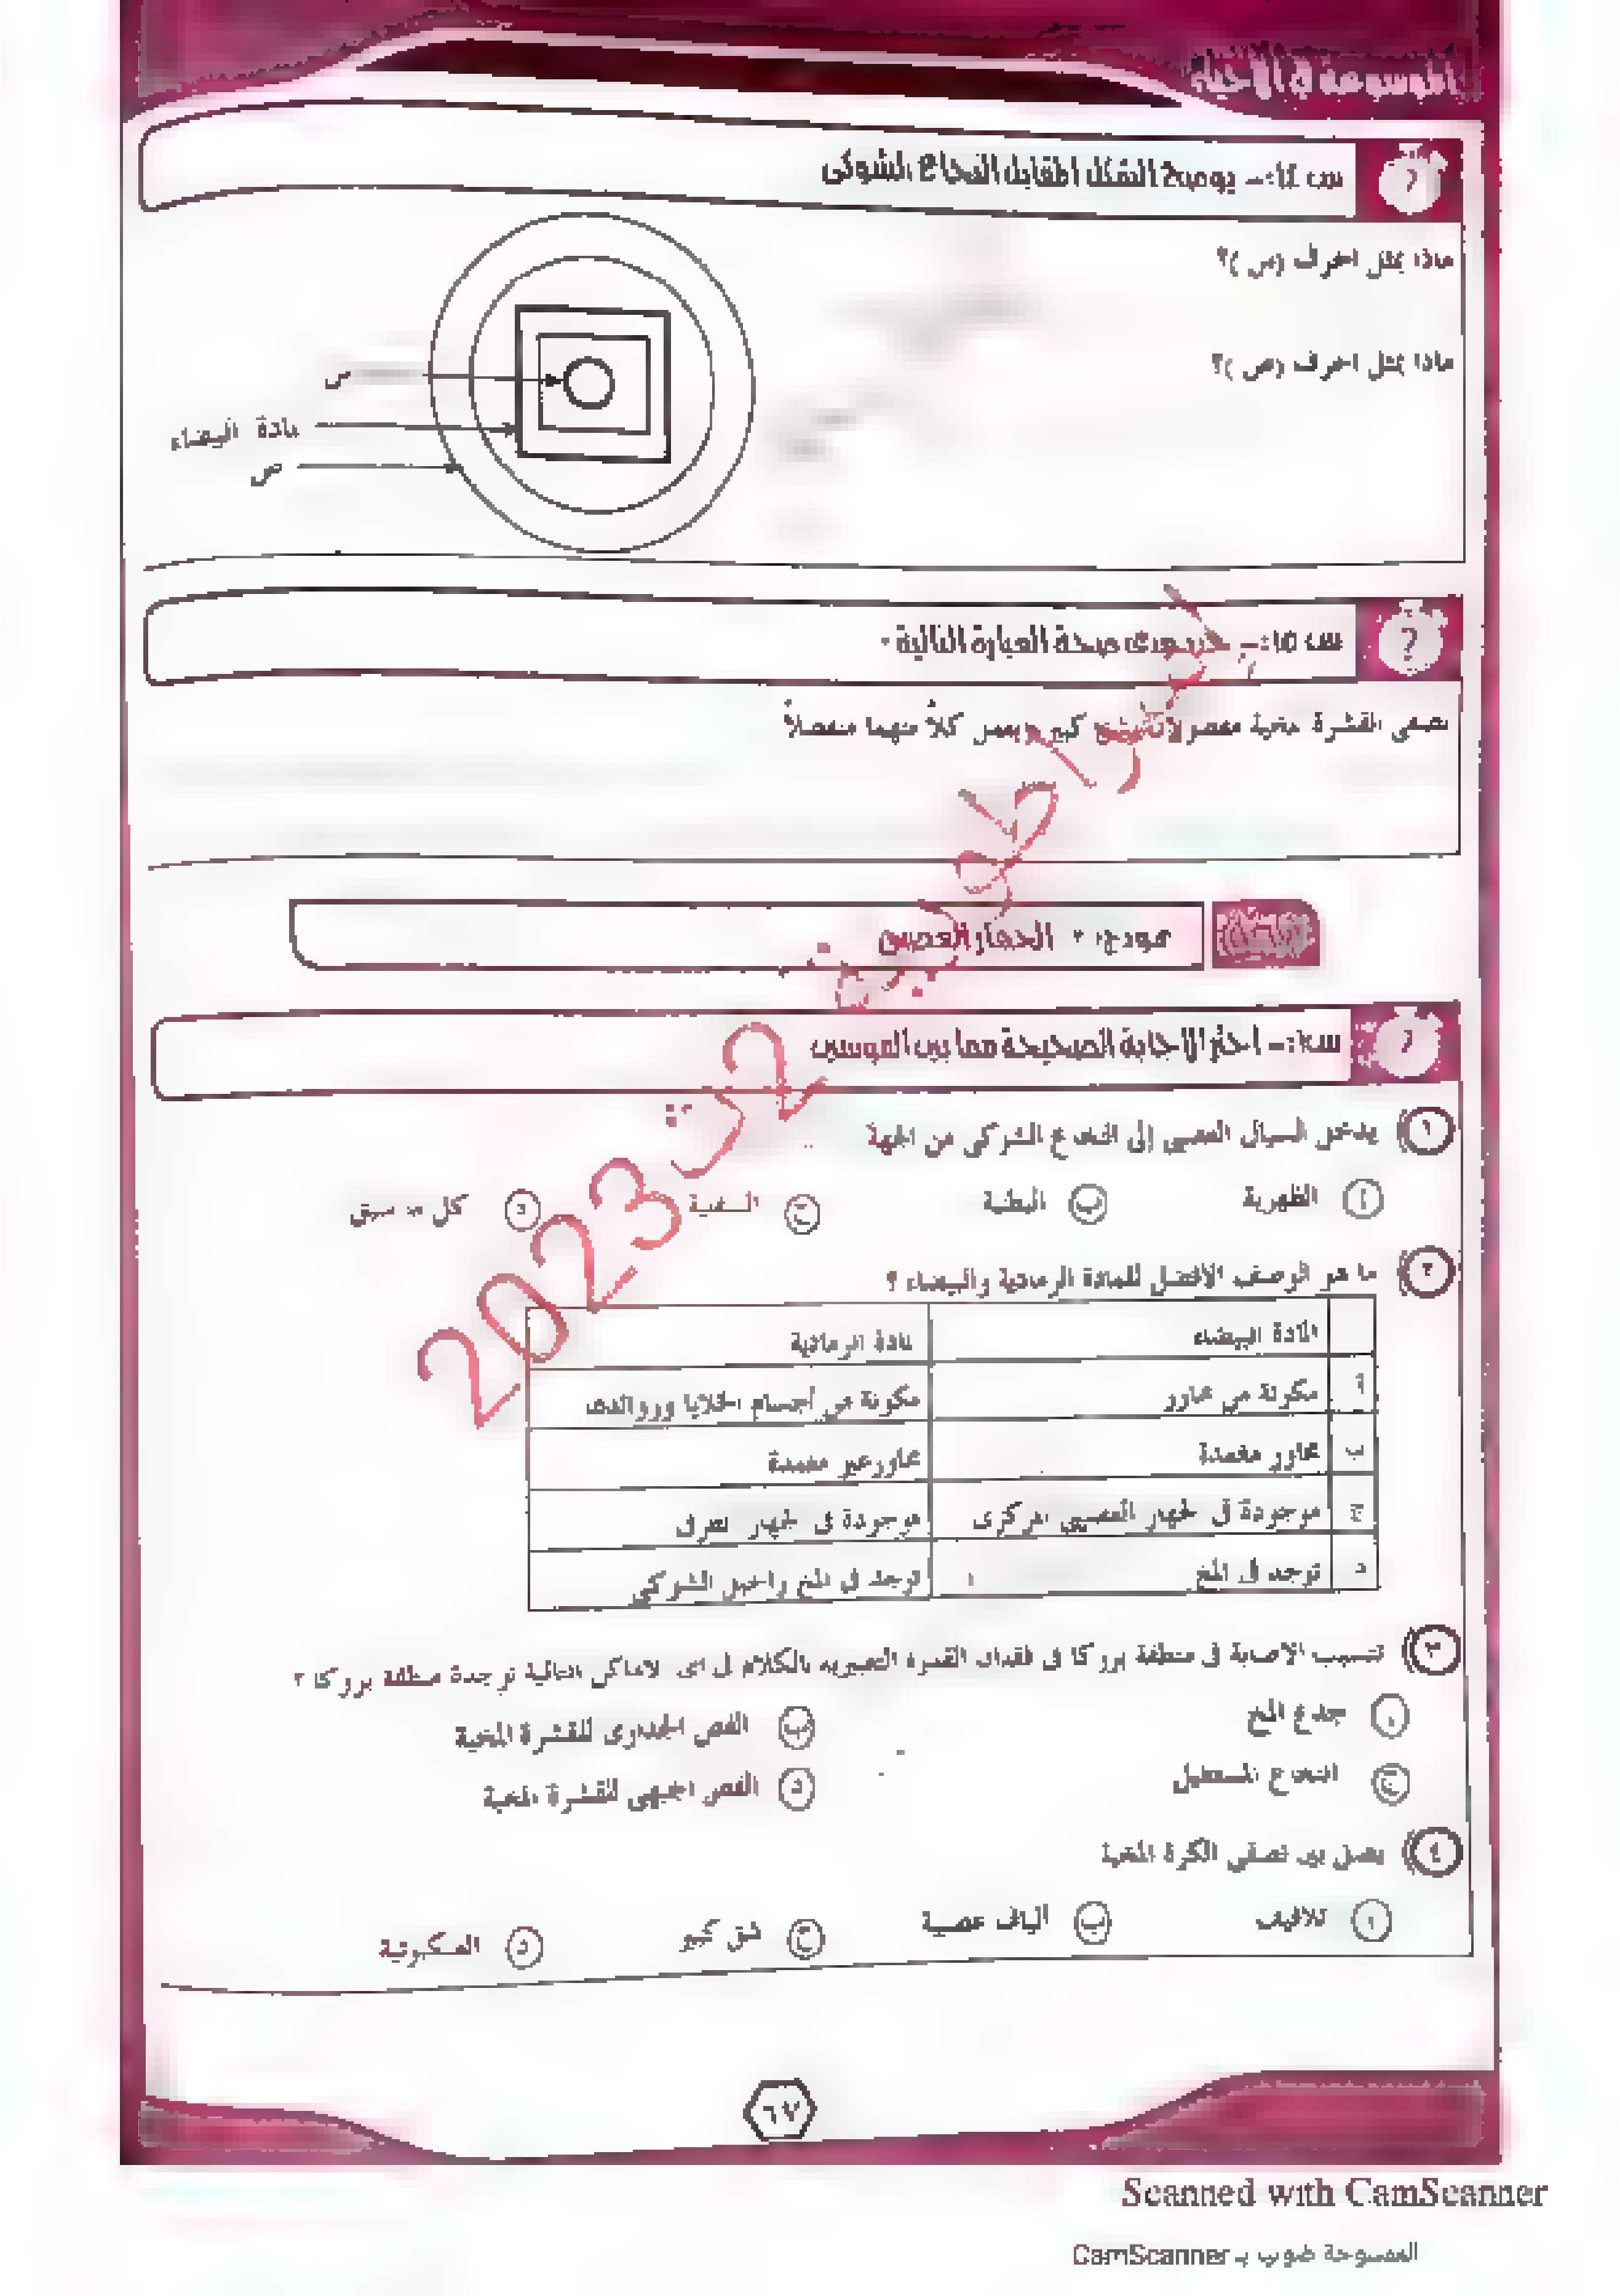 الموسوعة في الأحياء
س ١٤:- يوضح الشكل المقابل النخاع الشوكى
ماذا يمثل الحرف (س)؟
ماذا يمثل الحرف (ص)؟
س
مادة البيضاء
ص
س ١٥:- مدى صحة العبارة التالية
نصفى القشرة مخية منفصلان كبير ويعمل كلاً منهما منفصلاً
نموذج ٢ الجهاز العصبى
س١:- اختر الاجابة الصحيحة مما بين القوسين
١ يدخل السيال العصبى إلى النخاع الشوكى من الجهة
أ الظهرية ب البطنية ج د كل ما سبق
٢ ما هو الوصف الأفضل للمادة الرمادية والبيضاء ؟
المادة البيضاء مادة الرمادية
أ مكونة من محاور مكونة من أجسام الخلايا وزوائد
ب محاور مغمدة محاور غير مغمدة
ج موجودة فى الجهاز العصبى المركزى موجودة فى الجهاز الطرفى
د توجد فى المخ توجد فى المخ والحبل الشوكى
٣ تتسبب الاصابة فى منطقة بروكا فى فقدان القدرة التعبيرية بالكلام فى اى الاماكن التالية توجدة منطقة بروكا ؟
أ جذع المخ ب الفص الجدارى للقشرة المخية
ج النخاع المستطيل د الفص الجبهى للقشرة المخية
٤ يصل بين نصفى الكرة المخية
أ تلافيف ب ألياف عصبية ج شق كبير د العنكبوتية
2023 ت2
٦٧
Scanned with CamScanner
الممسوحة ضوئيا بـ CamScanner